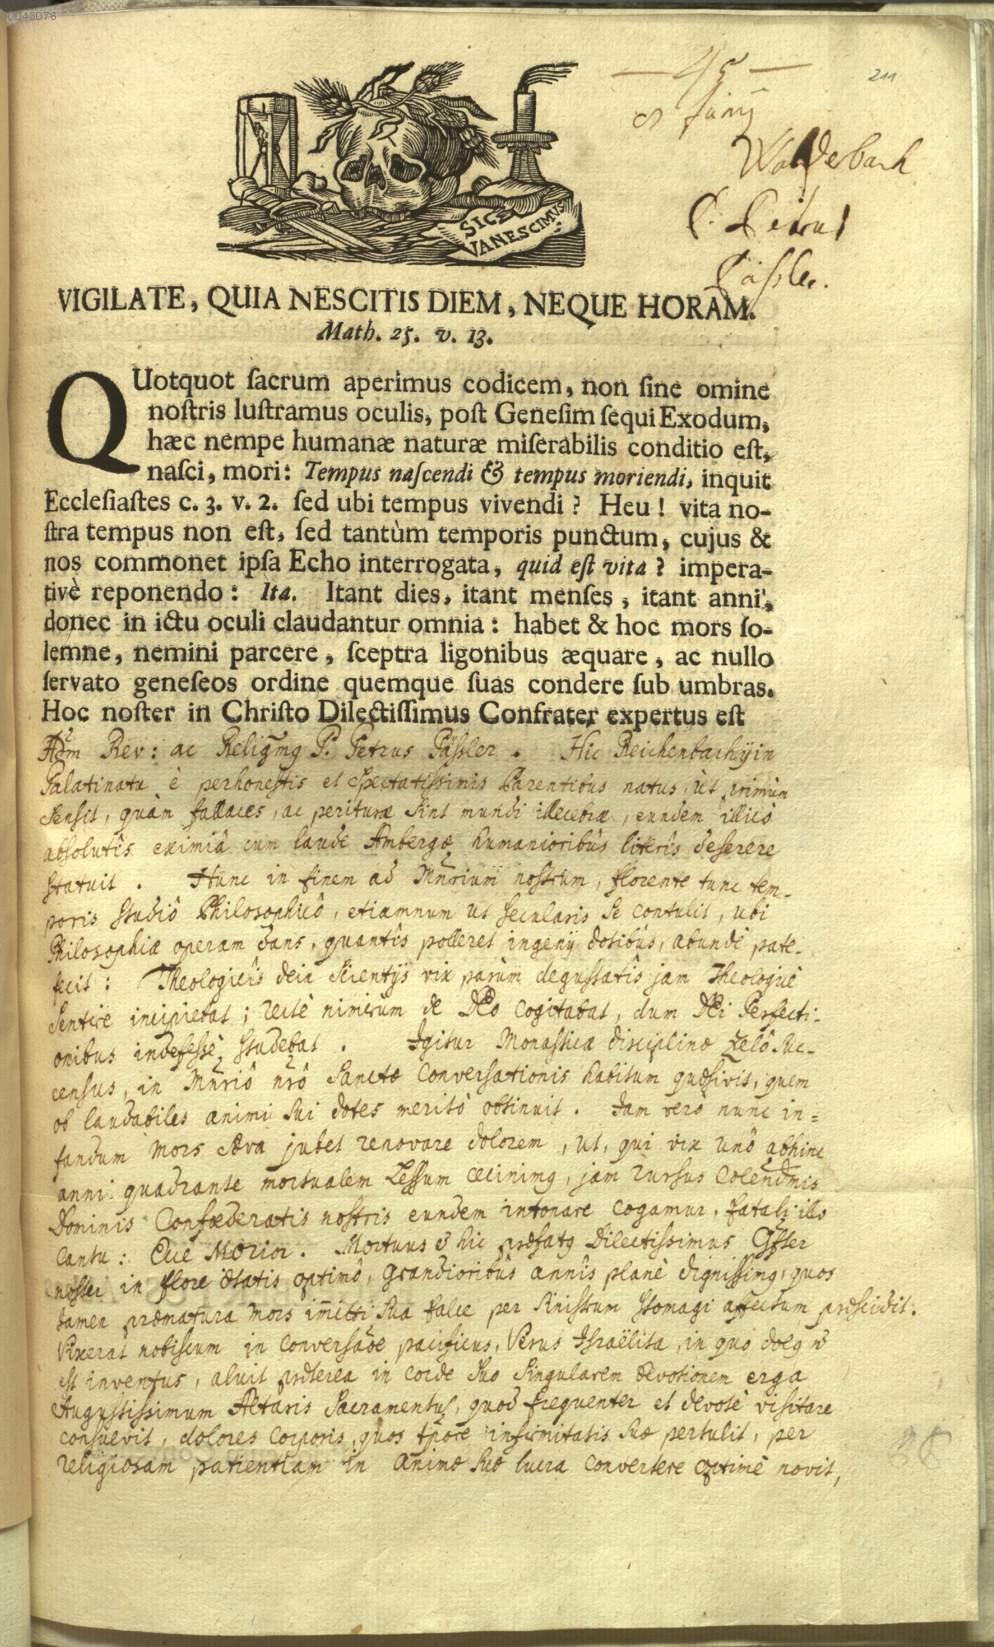 0043076
— 45 —
211
Junij
Walderbach
P. Petrus
Päsler.
SIC
VANESCIMUS
VIGILATE, QUIA NESCITIS DIEM, NEQUE HORAM.
Math. 25. v. 13.
QUotquot ſacrum aperimus codicem, non ſine omine
noſtris luſtramus oculis, poſt Geneſim ſequi Exodum,
hæc nempe humanæ naturæ miſerabilis conditio eſt,
naſci, mori: Tempus naſcendi & tempus moriendi, inquit
Eccleſiaſtes c. 3. v. 2. ſed ubi tempus vivendi? Heu! vita no-
ſtra tempus non eſt, ſed tantùm temporis punctum, cujus &
nos commonet ipſa Echo interrogata, quid eſt vita? impera-
tivè reponendo: Ita. Itant dies, itant menſes, itant anni,
donec in ictu oculi claudantur omnia: habet & hoc mors ſo-
lemne, nemini parcere, ſceptra ligonibus æquare, ac nullo
ſervato geneſeos ordine quemque ſuas condere ſub umbras.
Hoc noſter in Chriſto Dilectiſſimus Confrater expertus eſt
Adm Rev: ac Religmg P. Petrus Päsler. Hic Reichenbachij in
Palatinatu è perhonestis et spectatissimis Parentibus natus, ut primùm
sensit, quàm fallaces, ac perituræ sint mundi illecebræ, eundem illicò
absolutis eximiâ cum laude Ambergæ humanioribus literis deserere
statuit. Hunc in finem ad Mnrium nostrum, florente tunc tem-
poris studiô Philosophicô, etiamnum ut secularis se contulit, ubi
Philosophiæ operam dans, quantis polleret ingenij dotibus, abundè pate-
fecit: Theologicis dein scientijs vix parùm degustatis jam Theologicè
sentire incipiebat; rectè nimirum de Deo cogitabat, dum Dei Perfecti-
onibus indefessè studebat. Igitur Monasticæ disciplinæ zelô suc-
census, in Mnriô nrô Sanctæ Conversationis habitum quæsivit, quem
ob laudabiles animi sui dotes meritò obtinuit. Jam verò nunc in=
fandum Mors sæva jubet renovare dolorem, ut, qui vix unô abhinc
anni quadrante mortualem Lessum cecinimg, jam rursus Colendmis
Dominis Confœderatis nostris eundem intonare cogamur, fatali illo
cantu: Ecce Morior. Mortuus & hic præfatg Dilectissimus Cfrter
noster in flore ætatis optimô, grandioribus annis planè dignissimg, quos
tamen præmatura mors injecti sua falce per sinistrum stomagi affectum præscidit.
Vixerat nobiscum in conversaõe pacificus, Verus Israëlita, in quo dolg ñ
est inventus, aluit præterea in corde suo singularem devotionem erga
Augustissimum Altaris Sacramentum, quod frequenter et devotè visitare
consuevit, dolores corporis, quos tpore infirmitatis suæ pertulit, per
religiosam patientiam in animæ suæ lucra convertere optimè novit,